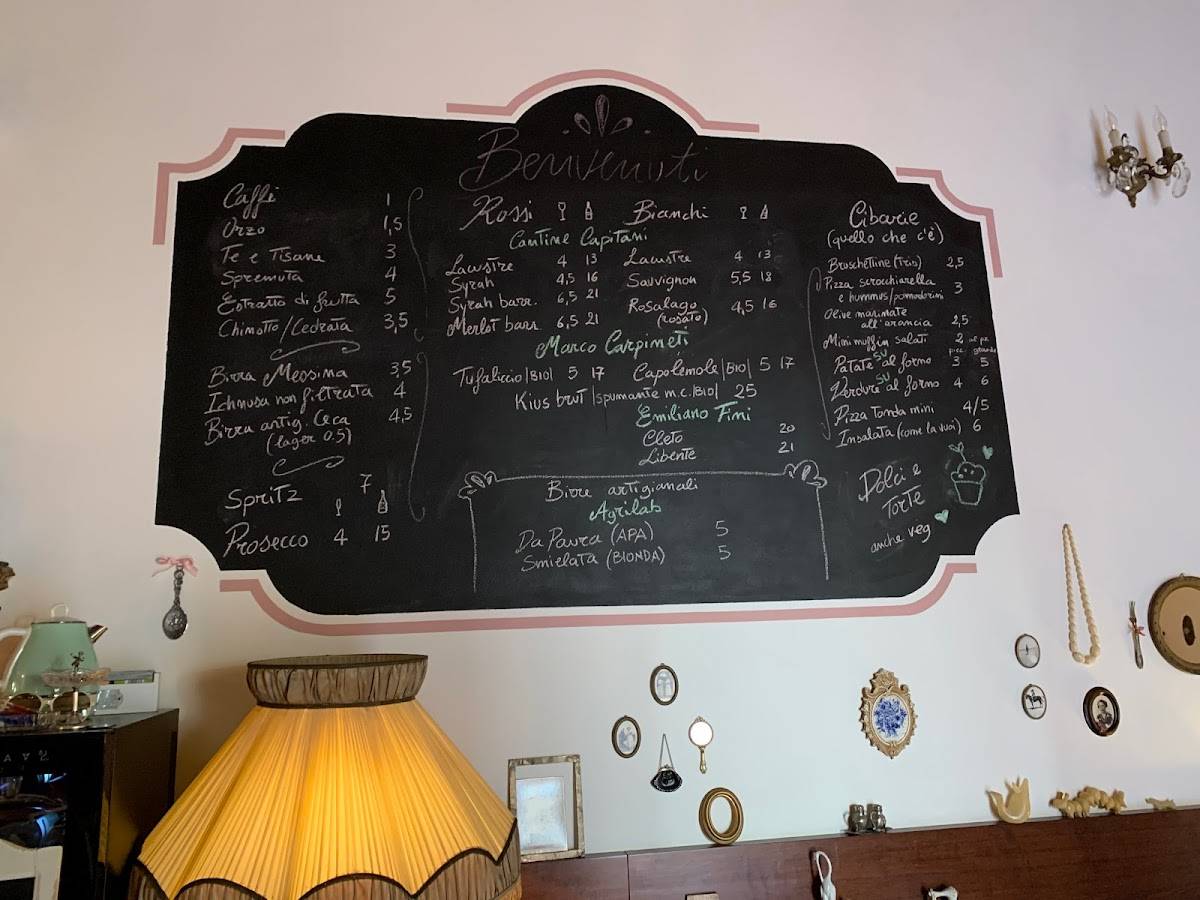 Benvenuti
Caffè 1
Orzo 1,5
Te e Tisane 3
Spremuta 4
Estratto di frutta 5
Chinotto/Cedrata 3,5
Birra Messina 3,5
Ichnusa non filtrata 4
Birra artig. Ceca 4,5
(lager 0.5)
Spritz 7
Prosecco 4 15
Rossi
Bianchi
Cantine Capitani
Lacustre 4 13
Syrah 4,5 16
Syrah barr. 6,5 21
Merlot barr 6,5 21
Lacustre 4 13
Sauvignon 5,5 18
Rosalago 4,5 16
(rosato)
Marco Carpineti
Tufaliccio |BIO| 5 17
Capolemole |BIO| 5 17
Kius brut |spumante m.c.|BIO| 25
Emiliano Fini
Cleto 20
Libente 21
Birre artigianali
Agrilab
Da Paura (APA) 5
Smielata (BIONDA) 5
Cibarie
(quello che c'è)
Bruschettine (tris) 2,5
Pizza scrocchiarella
e hummus/pomodorini 3
Olive marinate
all'arancia 2,5
Mini muffin salati 2
Patate su al forno 3 5
Verdure su al forno 4 6
Pizza Tonda mini 4/5
Insalata (come la vuoi) 6
Dolci e
Torte
anche veg